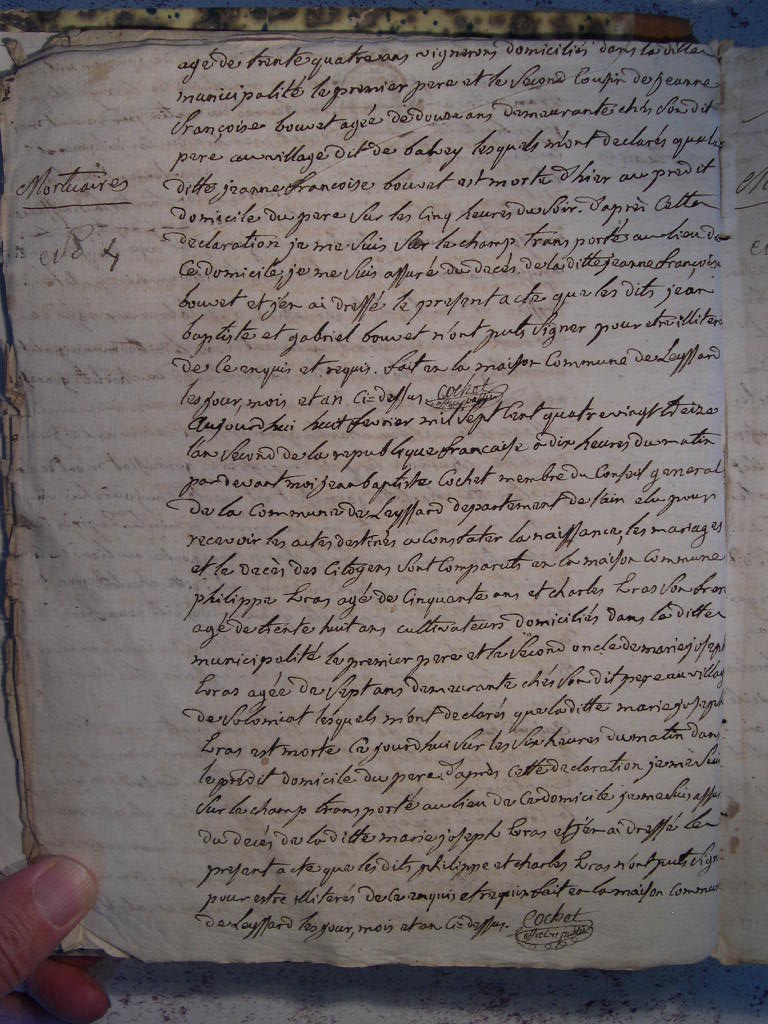 Mortuaires
N° 4
agé de trente quatre ans vignerons domiciliés dans la ditte
municipalité le premier pere et le second cousin de jeanne
françoise bouvet agée de douze ans demeurante chés son dit
pere au village dit de balvey lesquels m'ont declarés que la
ditte jeanne francoise bouvet est morte d'hier au prédit
domicile du pere sur les cinq heures du soir. d'après cette
declaration je me suis sur le champ transporté au lieu de
ce domicile, je me suis assuré du decès de la ditte jeanne françoise
bouvet et j'en ai dressé le present acte que les dits jean
baptiste et gabriel bouvet n'ont puts signer pour etre illiterés
de ce enquis et requis. fait en la maison commune de Leyssard
les jour, mois et an ci-dessus. cochet
officier public
Aujourd'hui huit fevrier mil sept cent quatre vingt treize
l'an second de la republique francaise a dix heures du matin
pardevant moi jean baptiste Cochet membre du Conseil general
de la commune de Leyssard departement de l'ain elu pour
recevoir les actes destinés a constater la naissance, les mariages
et le decès des Citoyens sont comparuts en la maison commune
philippe Lras agé de cinquante ans et charles Lras son frere
agé de trente huit ans cultivateurs domiciliés dans la ditte
municipalité le premier pere et le second oncle de marie joseph
Lras agée de sept ans demeurante chés son dit pere au village
de Solomiat lesquels m'ont declarés que la ditte marie joseph
Lras est morte ce jourd'hui sur les six heures du matin dans
le prédit domicile du pere. d'après cette declaration je me suis
sur le champ transporté au lieu de ce domicile je me suis assuré
du decès de la ditte marie joseph Lras et j'en ai dressé le
present acte que les dits philippe et charles Lras n'ont puts signer
pour estre illiterés de ce enquis et requis fait en la maison commune
de Leyssard les jour, mois et an ci-dessus. cochet
officier public